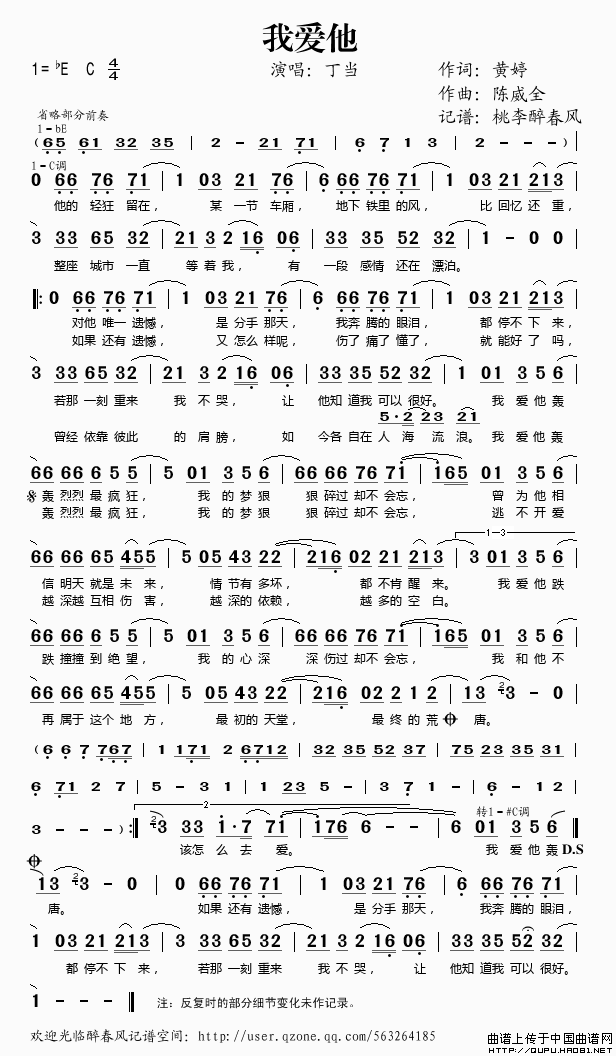 我爱他
1=♭E C 4/4
演唱：丁当
作词：黄婷
作曲：陈威全
记谱：桃李醉春风
省略部分前奏
1-bE
(65 61 32 35 | 2 - 21 71 | 6 7 1 3 | 2 - - -)
1-C调
0 66 76 71 | 1 03 21 76 | 6 66 76 71 | 1 03 21 213
他的 轻狂 留在， 某 一节 车厢， 地下 铁里 的风， 比 回忆 还 重，
3 33 65 32 | 213 2 16 06 | 33 35 52 32 | 1 - 0 0
整座 城市 一直 等着我， 有 一段 感情 还在 漂泊。
‖: 0 66 76 71 | 1 03 21 76 | 6 66 76 71 | 1 03 21 213
对他 唯一 遗憾， 是 分手 那天， 我奔 腾的 眼泪， 都 停不 下 来，
如果 还有 遗憾， 又 怎么 样呢， 伤了 痛了 懂了， 就 能好 了 吗，
3 33 65 32 | 21 3 216 06 | 33 35 52 32 | 1 01 3 5 6
若那 一刻 重来 我 不 哭， 让 他知 道我 可以 很好。 我 爱 他 轰
5·2 23 21
曾经 依靠 彼此 的 肩 膀， 如 今各 自在 人 海 流 浪。 我 爱 他 轰
66 66 6 5 5 | 5 01 3 5 6 | 66 66 76 71 | 165 01 3 5 6
轰 烈烈 最 疯 狂， 我 的 梦 狠 狠 碎过 却不 会忘， 曾 为 他 相
轰 烈烈 最 疯 狂， 我 的 梦 狠 狠 碎过 却不 会忘， 逃 不 开 爱
1-3
66 66 65 455 | 5 05 43 22 | 216 02 21 213 | 3 01 3 5 6
信 明天 就是 未 来， 情 节有 多坏， 都 不肯 醒 来。 我 爱 他 跌
越 深越 互相 伤 害， 越 深的 依赖， 越 多的 空 白。
66 66 6 5 5 | 5 01 3 5 6 | 66 66 76 71 | 165 01 3 5 6
跌 撞撞 到 绝 望， 我 的 心 深 深伤 过却 不 会忘， 我 和 他 不
66 66 65 455 | 5 05 43 22 | 216 02 2 1 2 | 13 3 - 0
再 属于 这个 地 方， 最 初的 天堂， 最 终 的 荒 唐。
(6 6 7 767 | 1 171 2 6712 | 32 35 52 37 | 75 23 35 31
6 71 2 7 | 5 - 3 1 | 1 23 5 - | 3 7 1 - | 6 - 1 2
2
转1-#C调
3 - - ):‖ 3 33 1·7 71 | 176 6 - - | 6 01 3 5 6 ‖
该怎 么 去 爱。 我 爱 他 轰 D.S
13 3 - 0 | 0 66 76 71 | 1 03 21 76 | 6 66 76 71
唐。 如果 还有 遗憾， 是 分手 那天， 我奔 腾的 眼泪，
1 03 21 213 | 3 33 65 32 | 21 3 216 06 | 33 35 52 32
都 停不 下 来， 若那 一刻 重来 我 不 哭， 让 他知 道我 可以 很好。
1 - - - ‖
注：反复时的部分细节变化未作记录。
欢迎光临醉春风记谱空间：http://user.qzone.qq.com/563264185
曲谱上传于中国曲谱网
HTTP://QUPU.HAO81.NET